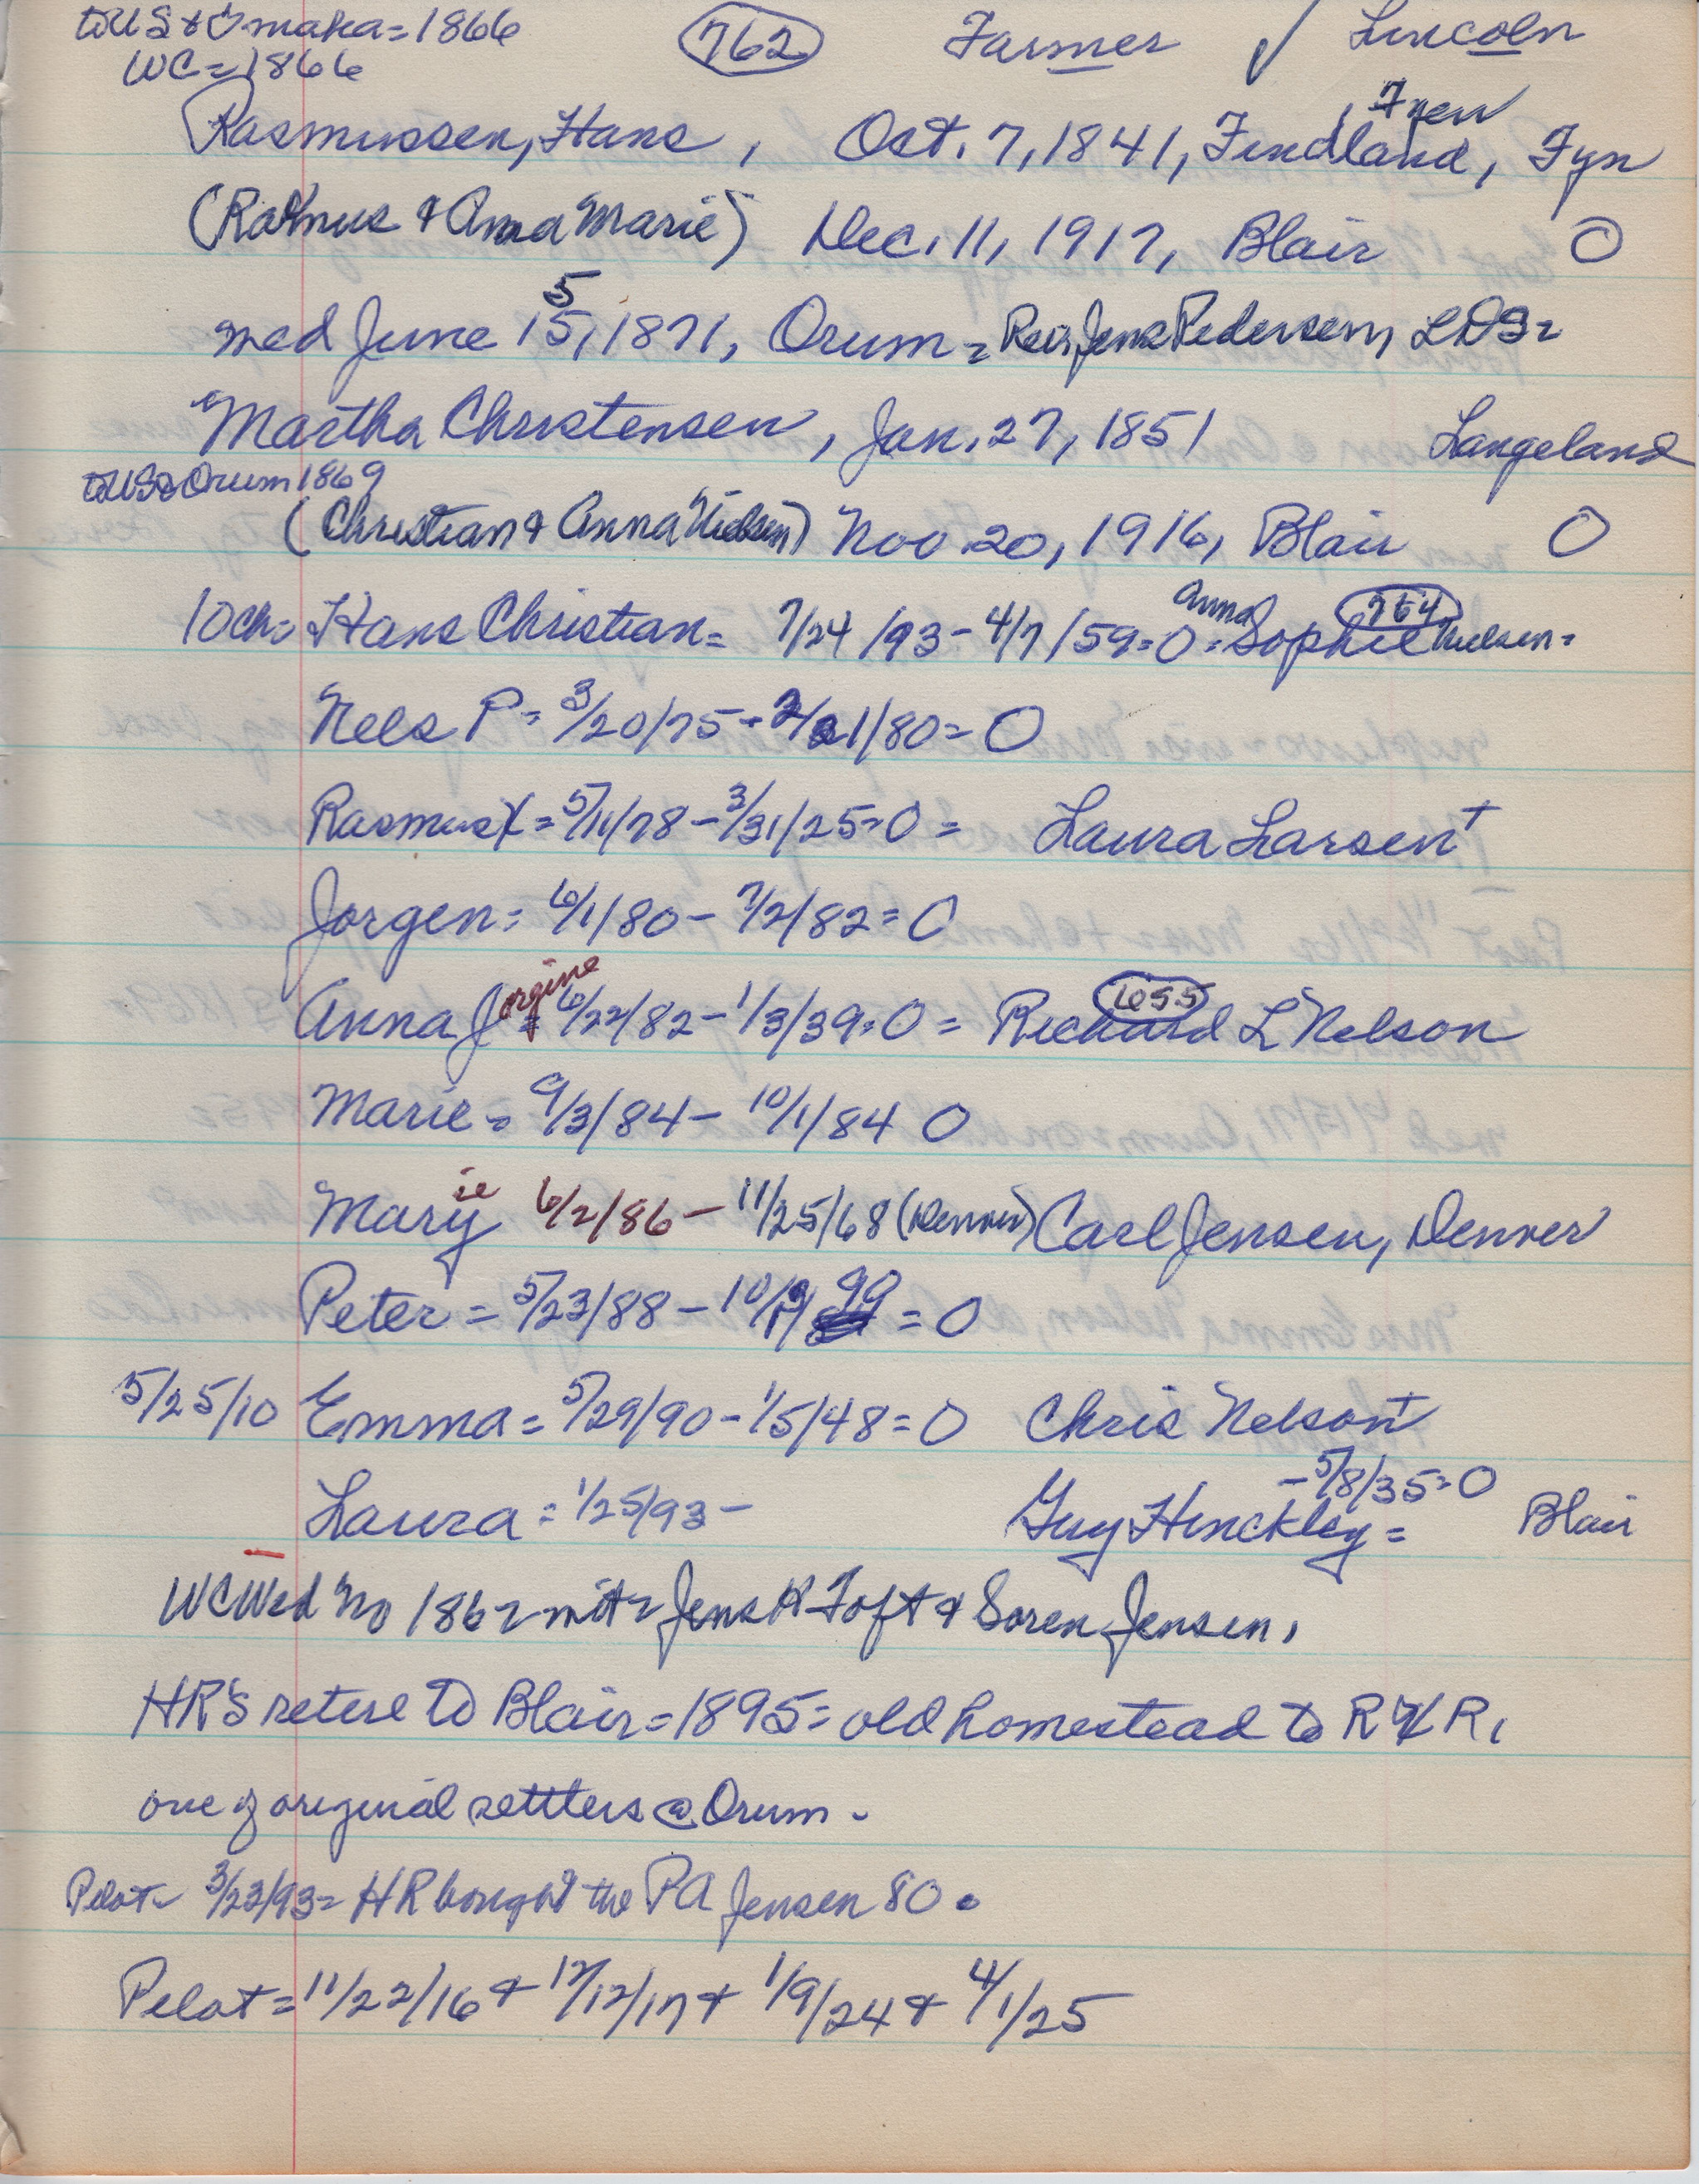 to US & Omaha = 1866 762 Farmer ✓ Lincoln
WC = 1866
, Fren
Rasmussen, Hans, Oct. 7, 1841, Findland, Fyn
(Rasmus & Anna Marie) Dec. 11, 1917, Blair O
5
med June 15, 1871, Orum = Rev. Jens Pedersen, LDS =
Martha Christensen, Jan. 27, 1851 Langeland
to US & Orum 1869
(Christian & Anna Nielsen) Nov 20, 1916, Blair O
Anna 764
10 ch = Hans Christian = 7/24/93 - 4/7/59 = O = Sophie Nielsen =
Nels P = 3/20/75 - 2/21/80 = O
Rasmus = 5/11/78 - 3/31/25 = O = Laura Larsen +
Jorgen = 6/1/80 - 7/2/82 = O
Anna Jorgine = 6/22/82 - 1/3/39 = O = Richard L Nelson 655
Marie = 9/3/84 - 10/1/84 O
ie
Mary 6/2/86 - 11/25/68 (Denver) Carl Jensen, Denver
Peter = 5/23/88 - 10/9/90 = O
5/25/10 Emma = 5/29/90 - 1/5/48 = O Chris Nelson +
- 5/8/35 = O
Laura = 1/25/93 - Guy Hinckley = Blair
WC Wed no 1862 mit = Jens H Toft & Soren Jensen,
HR's retire to Blair = 1895 = old homestead to R H R,
one of original settlers @ Orum -
Pilot - 3/23/93 = HR bought the PA Jensen 80.
Pilot = 11/22/16 & 12/12/17 & 1/9/24 & 4/1/25